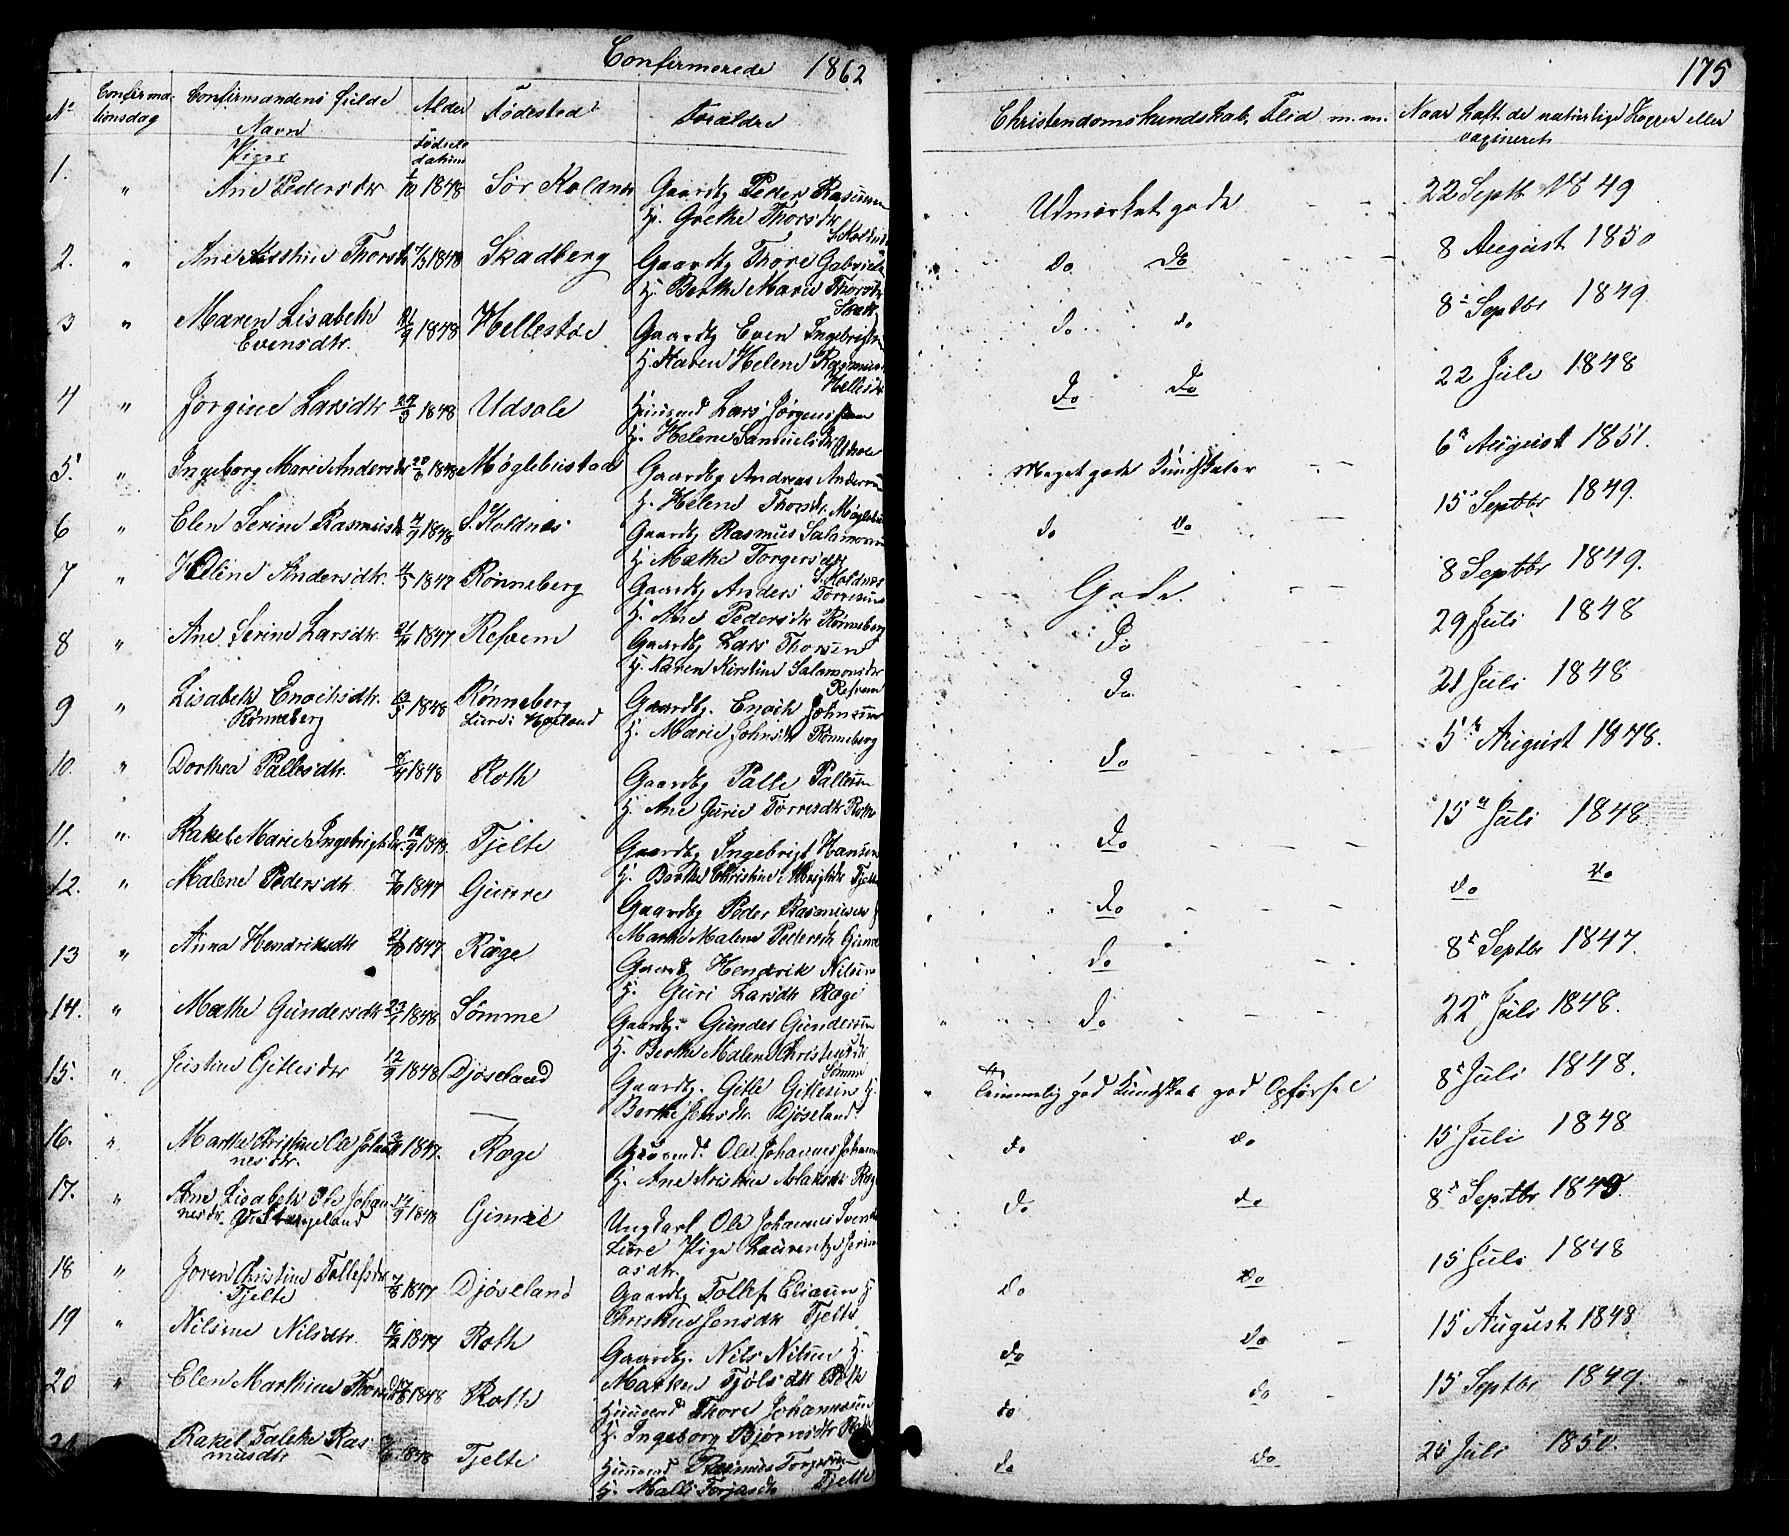 Confirmerede 1862
175
No Confirmationsdag Confirmandens fulde Navn Alder Fødselsdatum Fødested Forældre Christendomskundskab, Flid m. m. Naar haft de naturlige Kopper eller vaxineret
Piger
1. " Ane Pedersdtr 1848 Sør Kolnes Gaardbr Peder Rasmussen
H. Grethe Thorsdtr Udmærket gode 22 Septb 1849
2. " Ane Thorsdtr 1848 Skadberg Gaardbr Thore Gabrielsen
H. Berthe Marie Thorsdtr do do 8 August 1850
3 " Maren Lisabeth
Evensdtr. 21/9 1848 Hellestøe Gaardbr Even Ingebrigtsen
H. Karen Helene do do 8 Septbr 1849
4 " Jørgine Larsdtr 1848 Udsole Huusmd Lars Jørgensen
H. Helene Samuelsdtr Udsole do do 22 Juli 1848
5. " Ingeborg Marie Andersdtr 1848 Møglebustad Gaardbr Andreas Andersen
H. Helene Thorsdtr Møglebust Meget gode Kundskaber 6 August 1851.
6 " Elen Serine Rasmusdtr 1848 S. Kolnes Gaardbr Rasmus Salamonsen
H. Mathe Torgersdtr S. Kolnes do do 15 Septbr 1849.
7 " Heline Andersdtr. 1847 Rønneberg Gaardbr Anders Torresen
H. Ane Pedersdtr Rønneberg Gode. 8 Septbr 1849.
8 " Ane Serine Larsdtr 1847 Refsem Gaardbr Lars Thorsen
H. Maren Kirstine Salamonsdtr Refsem do 29 Juli 1848
9 " Lisabeth Enochsdtr.
Rønneberg 13/5 1848 Rønneberg Gaardbr. Enoch Johnsen
H. Marie Johnsdtr Rønneberg do 21 Juli 1848
10. " Dorthea Pallesdtr. 1848 Roth Gaardbr Palle Pallesen
H. Ane Gurie Torresdtr Roth do 5 August 1848.
11. " Rakel Marie Ingebrigtsdtr 1848 Tjelte Gaardbr Ingebrigt Hansen
H. Berthe Christine Tjelte do 15 Juli 1848
12. " Malene Pedersdtr 1847 Gimre Gaardbr Peder Rasmusen H
Marthe Malene Pedersdtr Gimre do do do
13 " Anna Hendriksdtr 21/10 1847 Ræge Gaardb Hendrik Nilsen
H. Guri Larsdtr Ræge do 8 Septbr 1847.
14. " Mathe Gundersdtr 1848 Sømme Gaardbr. Gunder Gundersen
H. Berthe Malene Christensdtr Sømme do 22 Juli 1848.
15. " Justine Gitlesdtr 12/9 1848 Djøseland Gaardbr. Gitle Gitlesen H.
Berthe Jensdtr. Djøseland Temmelig god Kundskab god Opførsel 8 Juli 1848.
16. " Marthe Christine Ole Johannesdtr. 1847. Ræge Huusmd. Ole Johannes Johannes
H. Ane Kristine Aslaksdtr Ræge do do 15 Juli 1848
17. " Ane Lisabeth Ole Johannesdtr. Stangeland 14/9 1848 Gimre Ungkarl Ole Johannes
Pige Laurentze Jeremiasdtr. do do 8 Septbr 1849.
18 " Joren Christine Tollefsdtr
Tjelte 1847 Djøseland Gaardbr Tollef Eliasen H
Christine Jensdtr Tjelte do do 15 Juli 1848
19 " Nilsine Nilsdtr. 1847 Roth Gaardbr. Nils Nilsen H.
Marthe Tjølsdtr Roth do do 15 August 1848
20 " Elen Marthine Thorsdtr 1848 Roth Huusmd Thore Johannesen
H. Ingeborg Bjørnsdtr Roth do do 15 Septbr 1849.
Rakel Talethe Rasmusdtr 1848 Tjelte Huusmd Rasmus Torjesen
H. Malli Torjasdtr Tjelte do do 25 Juli 1850.